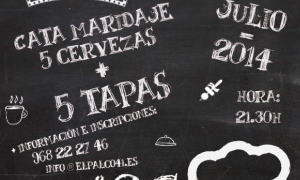 CATA MARIDAJE
5 CERVEZAS
+
5 TAPAS
+ INFORMACIÓN E INSCRIPCIONES:
968 22 27 46
INFO@ELPALCO41.ES
JULIO
=
2014
HORA:
21.30H